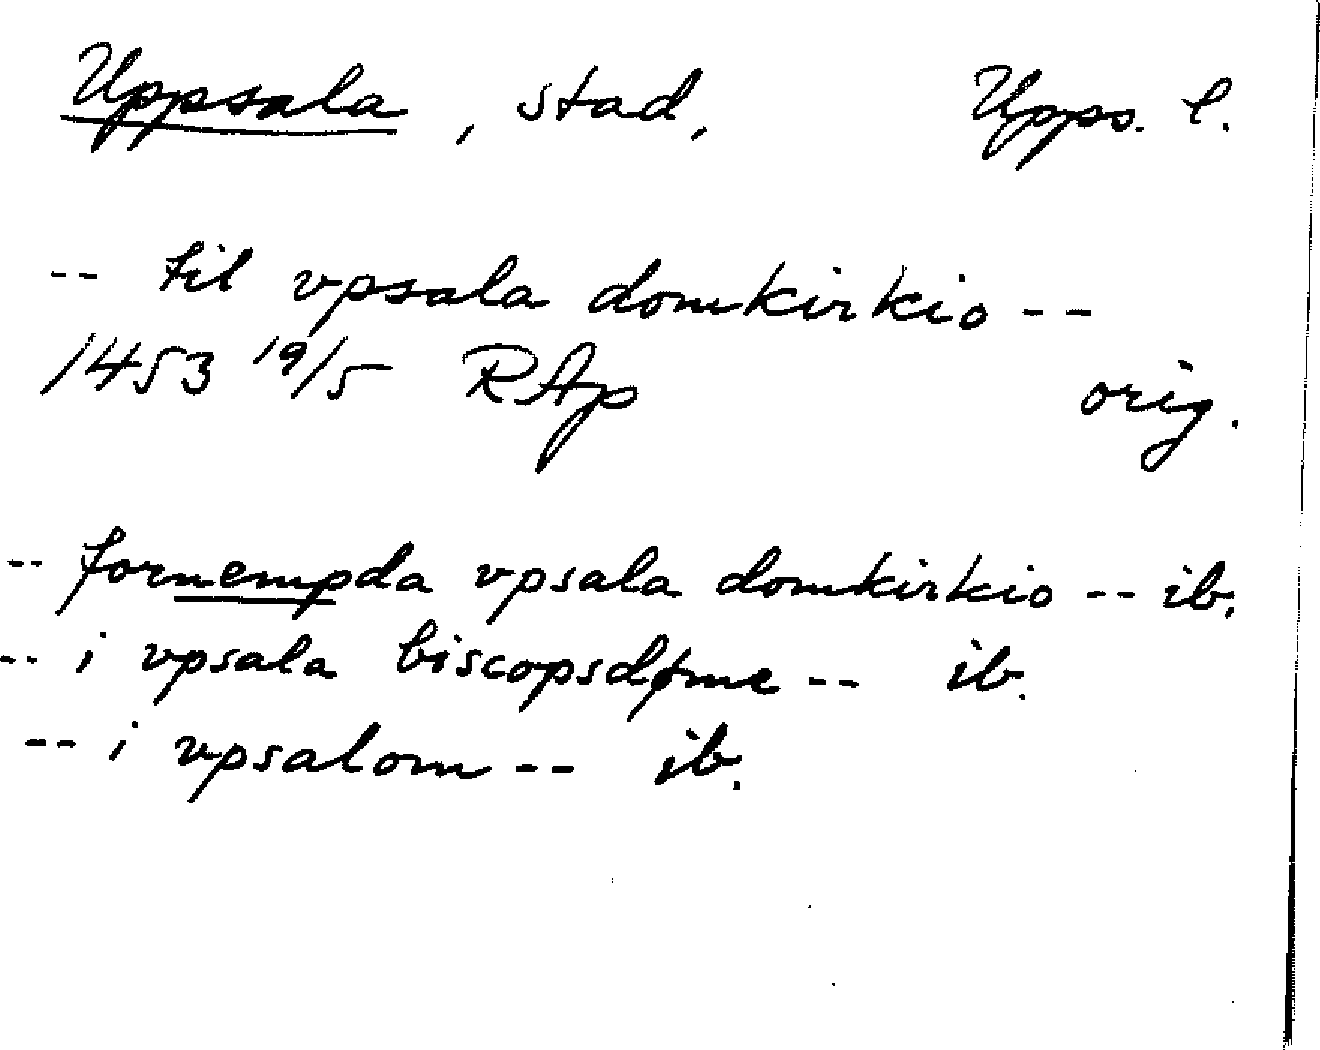 Uppsala, stad, Upps. l.
-- til vpsala domkirkio --
1453 19/5 RAp orig.
-- fornempda vpsala domkirkio -- ib.
-- i vpsala biscopsdøme -- ib.
-- i vpsalom -- ib.